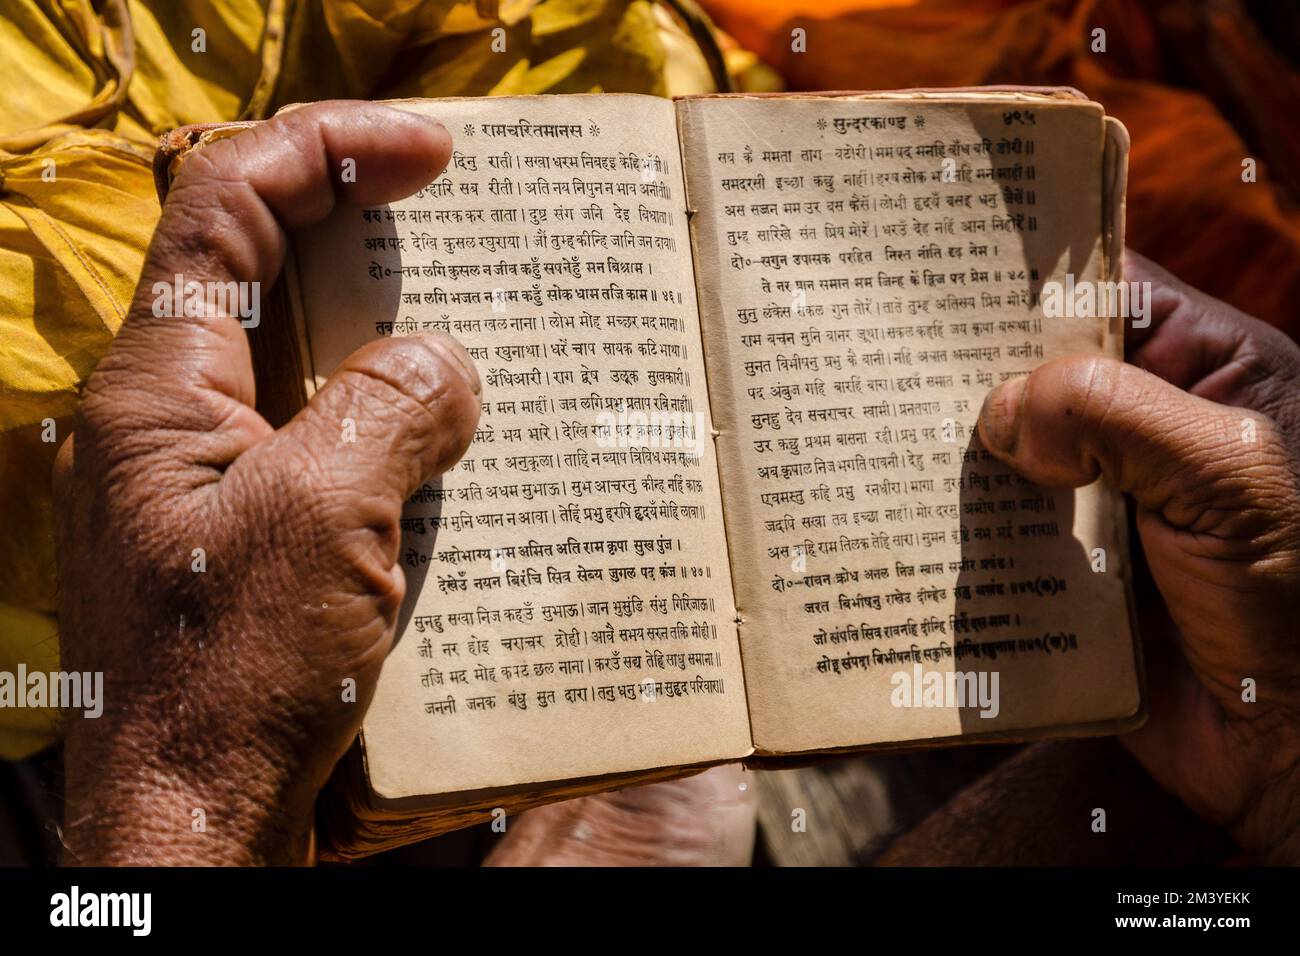 * रामचरितमानस *
दिनु राती। सखा धरम निबहइ केहि भाँती॥
तुम्हारि सब रीती। अति नय निपुन न भाव अनीती॥
बरु भल बास नरक कर ताता। दुष्ट संग जनि देइ बिधाता॥
अब पद देखि कुसल रघुराया। जौं तुम्ह कीन्हि जानि जन दाया॥
दो०—तब लगि कुसल न जीव कहुँ सपनेहुँ मन बिश्राम।
जब लगि भजत न राम कहुँ सोक धाम तजि काम॥ ४६॥
तब लगि हृदयँ बसत खल नाना। लोभ मोह मच्छर मद माना॥
सत रघुनाथा। धरें चाप सायक कटि भाथा॥
अँधिआरी। राग द्वेष उलूक सुखकारी॥
मन माहीं। जब लगि प्रभु प्रताप रबि नाहीं॥
मिटे भय भारे। देखि राम पद कमल तुम्हारे॥
जा पर अनुकूला। ताहि न ब्याप त्रिबिध भव सूला॥
निसिचर अति अधम सुभाऊ। सुभ आचरनु कीन्ह नहिं काऊ
जासु रूप मुनि ध्यान न आवा। तेहिं प्रभु हरषि हृदयँ मोहि लावा॥
दो०—अहोभाग्य मम अमित अति राम कृपा सुख पुंज।
देखेउँ नयन बिरंचि सिव सेब्य जुगल पद कंज॥ ४७॥
सुनहु सखा निज कहउँ सुभाऊ। जान भुसुंडि संभु गिरिजाऊ॥
जौं नर होइ चराचर द्रोही। आवै सभय सरन तकि मोही॥
तजि मद मोह कपट छल नाना। करउँ सद्य तेहि साधु समाना॥
जननी जनक बंधु सुत दारा। तनु धनु भवन सुहृद परिवारा॥
* सुन्दरकाण्ड * ४९५
सब कै ममता ताग बटोरी। मम पद मनहि बाँध बरि डोरी॥
समदरसी इच्छा कछु नाहीं। हरष सोक भय नहिं मन माहीं॥
अस सज्जन मम उर बस कैसें। लोभी हृदयँ बसइ धनु जैसें॥
तुम्ह सारिखे संत प्रिय मोरें। धरउँ देह नहिं आन निहोरें॥
दो०—सगुन उपासक परहित निरत नीति दृढ़ नेम।
ते नर प्रान समान मम जिन्ह कें द्विज पद प्रेम॥ ४८॥
सुनु लंकेस सकल गुन तोरें। तातें तुम्ह अतिसय प्रिय मोरें॥
राम बचन सुनि बानर जूथा। सकल कहहिं जय कृपा बरूथा॥
सुनत बिभीषनु प्रभु कै बानी। नहिं अघात श्रवनामृत जानी॥
पद अंबुज गहि बारहिं बारा। हृदयँ समात न प्रेमु
सुनहु देव सचराचर स्वामी। प्रनतपाल उर
उर कछु प्रथम बासना रही। प्रभु पद प्रीति स
अब कृपाल निज भगति पावनी। देहु सदा सिव म
एवमस्तु कहि प्रभु रनधीरा। मागा तुरत सिंधु कर न
जदपि सखा तव इच्छा नाहीं। मोर दरसु अमोघ जग माहीं॥
अस कहि राम तिलक तेहि सारा। सुमन बृष्टि नभ भई अपारा॥
दो०—रावन क्रोध अनल निज स्वास समीर प्रचंड।
जरत बिभीषनु राखेउ दीन्हेउ राजु अखंड॥ ४९(क)॥
जो संपति सिव रावनहि दीन्हि दिएँ दस माथ।
सोइ संपदा बिभीषनहि सकुचि दीन्हि रघुनाथ॥ ४९(ख)॥
alamy
Image ID: 2M3YEKK
www.alamy.com